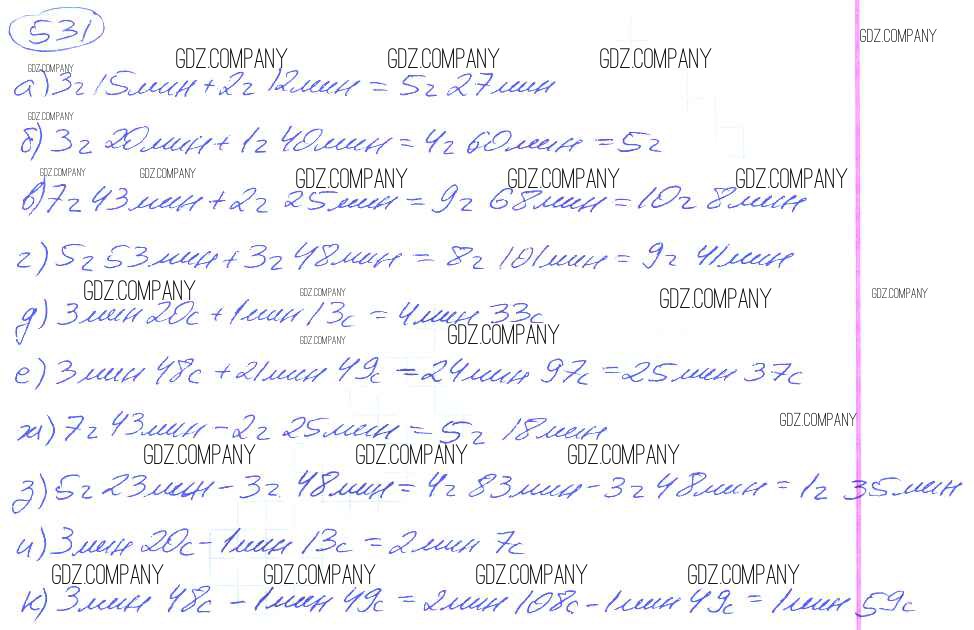 531
GDZ.COMPANY
GDZ.COMPANY GDZ.COMPANY GDZ.COMPANY
GDZ.COMPANY
а) 3ч 15мин + 2ч 12мин = 5ч 27мин
GDZ.COMPANY
б) 3ч 20мин + 1ч 40мин = 4ч 60мин = 5ч
GDZ.COMPANY GDZ.COMPANY GDZ.COMPANY GDZ.COMPANY GDZ.COMPANY
в) 7ч 43мин + 2ч 25мин = 9ч 68мин = 10ч 8мин
г) 5ч 53мин + 3ч 48мин = 8ч 101мин = 9ч 41мин
GDZ.COMPANY GDZ.COMPANY GDZ.COMPANY GDZ.COMPANY
д) 3мин 20с + 1мин 13с = 4мин 33с
GDZ.COMPANY GDZ.COMPANY
е) 3мин 48с + 21мин 49с = 24мин 97с = 25мин 37с
GDZ.COMPANY
ж) 7ч 43мин - 2ч 25мин = 5ч 18мин
GDZ.COMPANY GDZ.COMPANY GDZ.COMPANY
з) 5ч 23мин - 3ч 48мин = 4ч 83мин - 3ч 48мин = 1ч 35мин
и) 3мин 20с - 1мин 13с = 2мин 7с
GDZ.COMPANY GDZ.COMPANY GDZ.COMPANY GDZ.COMPANY
к) 3мин 48с - 1мин 49с = 2мин 108с - 1мин 49с = 1мин 59с